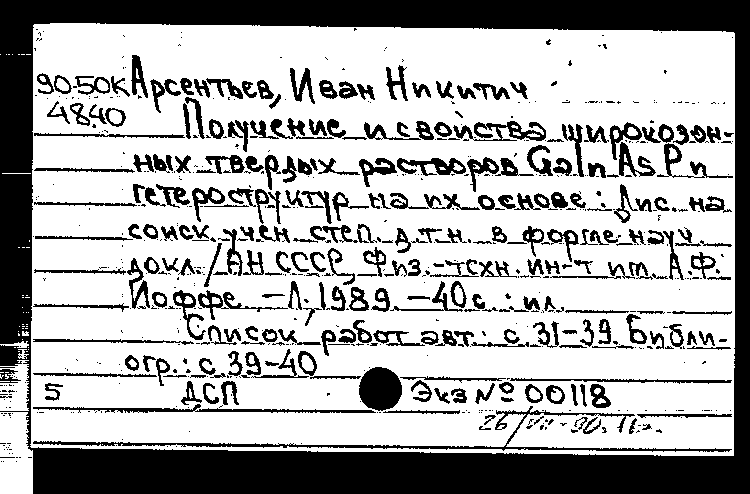 90-50К Арсентьев, Иван Никитич
4840 Получение и свойства широкозон-
ных твердых растворов GaInAsP и
гетероструктур на их основе: Дис. на
соиск. учен. степ. д.т.н. в форме науч.
докл./АН СССР, Физ.-техн. ин-т им. А.Ф.
Иоффе. -Л., 1989. -40с.: ил.
Список работ авт.: с.31-39. Библи-
огр.: с.39-40
5 ДСП Экз № 00118
26/VII-90.